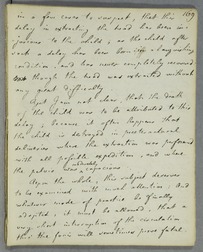 109
in a few cases to suspect, that this
delay in extracting the head has been in-
jurious to the child; as the child after
such a delay has been born in a languishing
condition, and has never completely recovered
though the head was extracted without
any great difficulty.
Yet I am not clear, that the death
of the child was to be attributed to this
delay, because it often happens that
the child is destroyed in preternatural
deliveries where the extraction was performed
with all possible expedition, and where
the pelvis was sufficiently capacious.
Upon the whole, this subject deserves
to be examined with much attention; And
whatever mode of practice be finally
adopted, it must be allowed, that a
very short interruption of the circulation
thro the funis will sometimes prove fatal